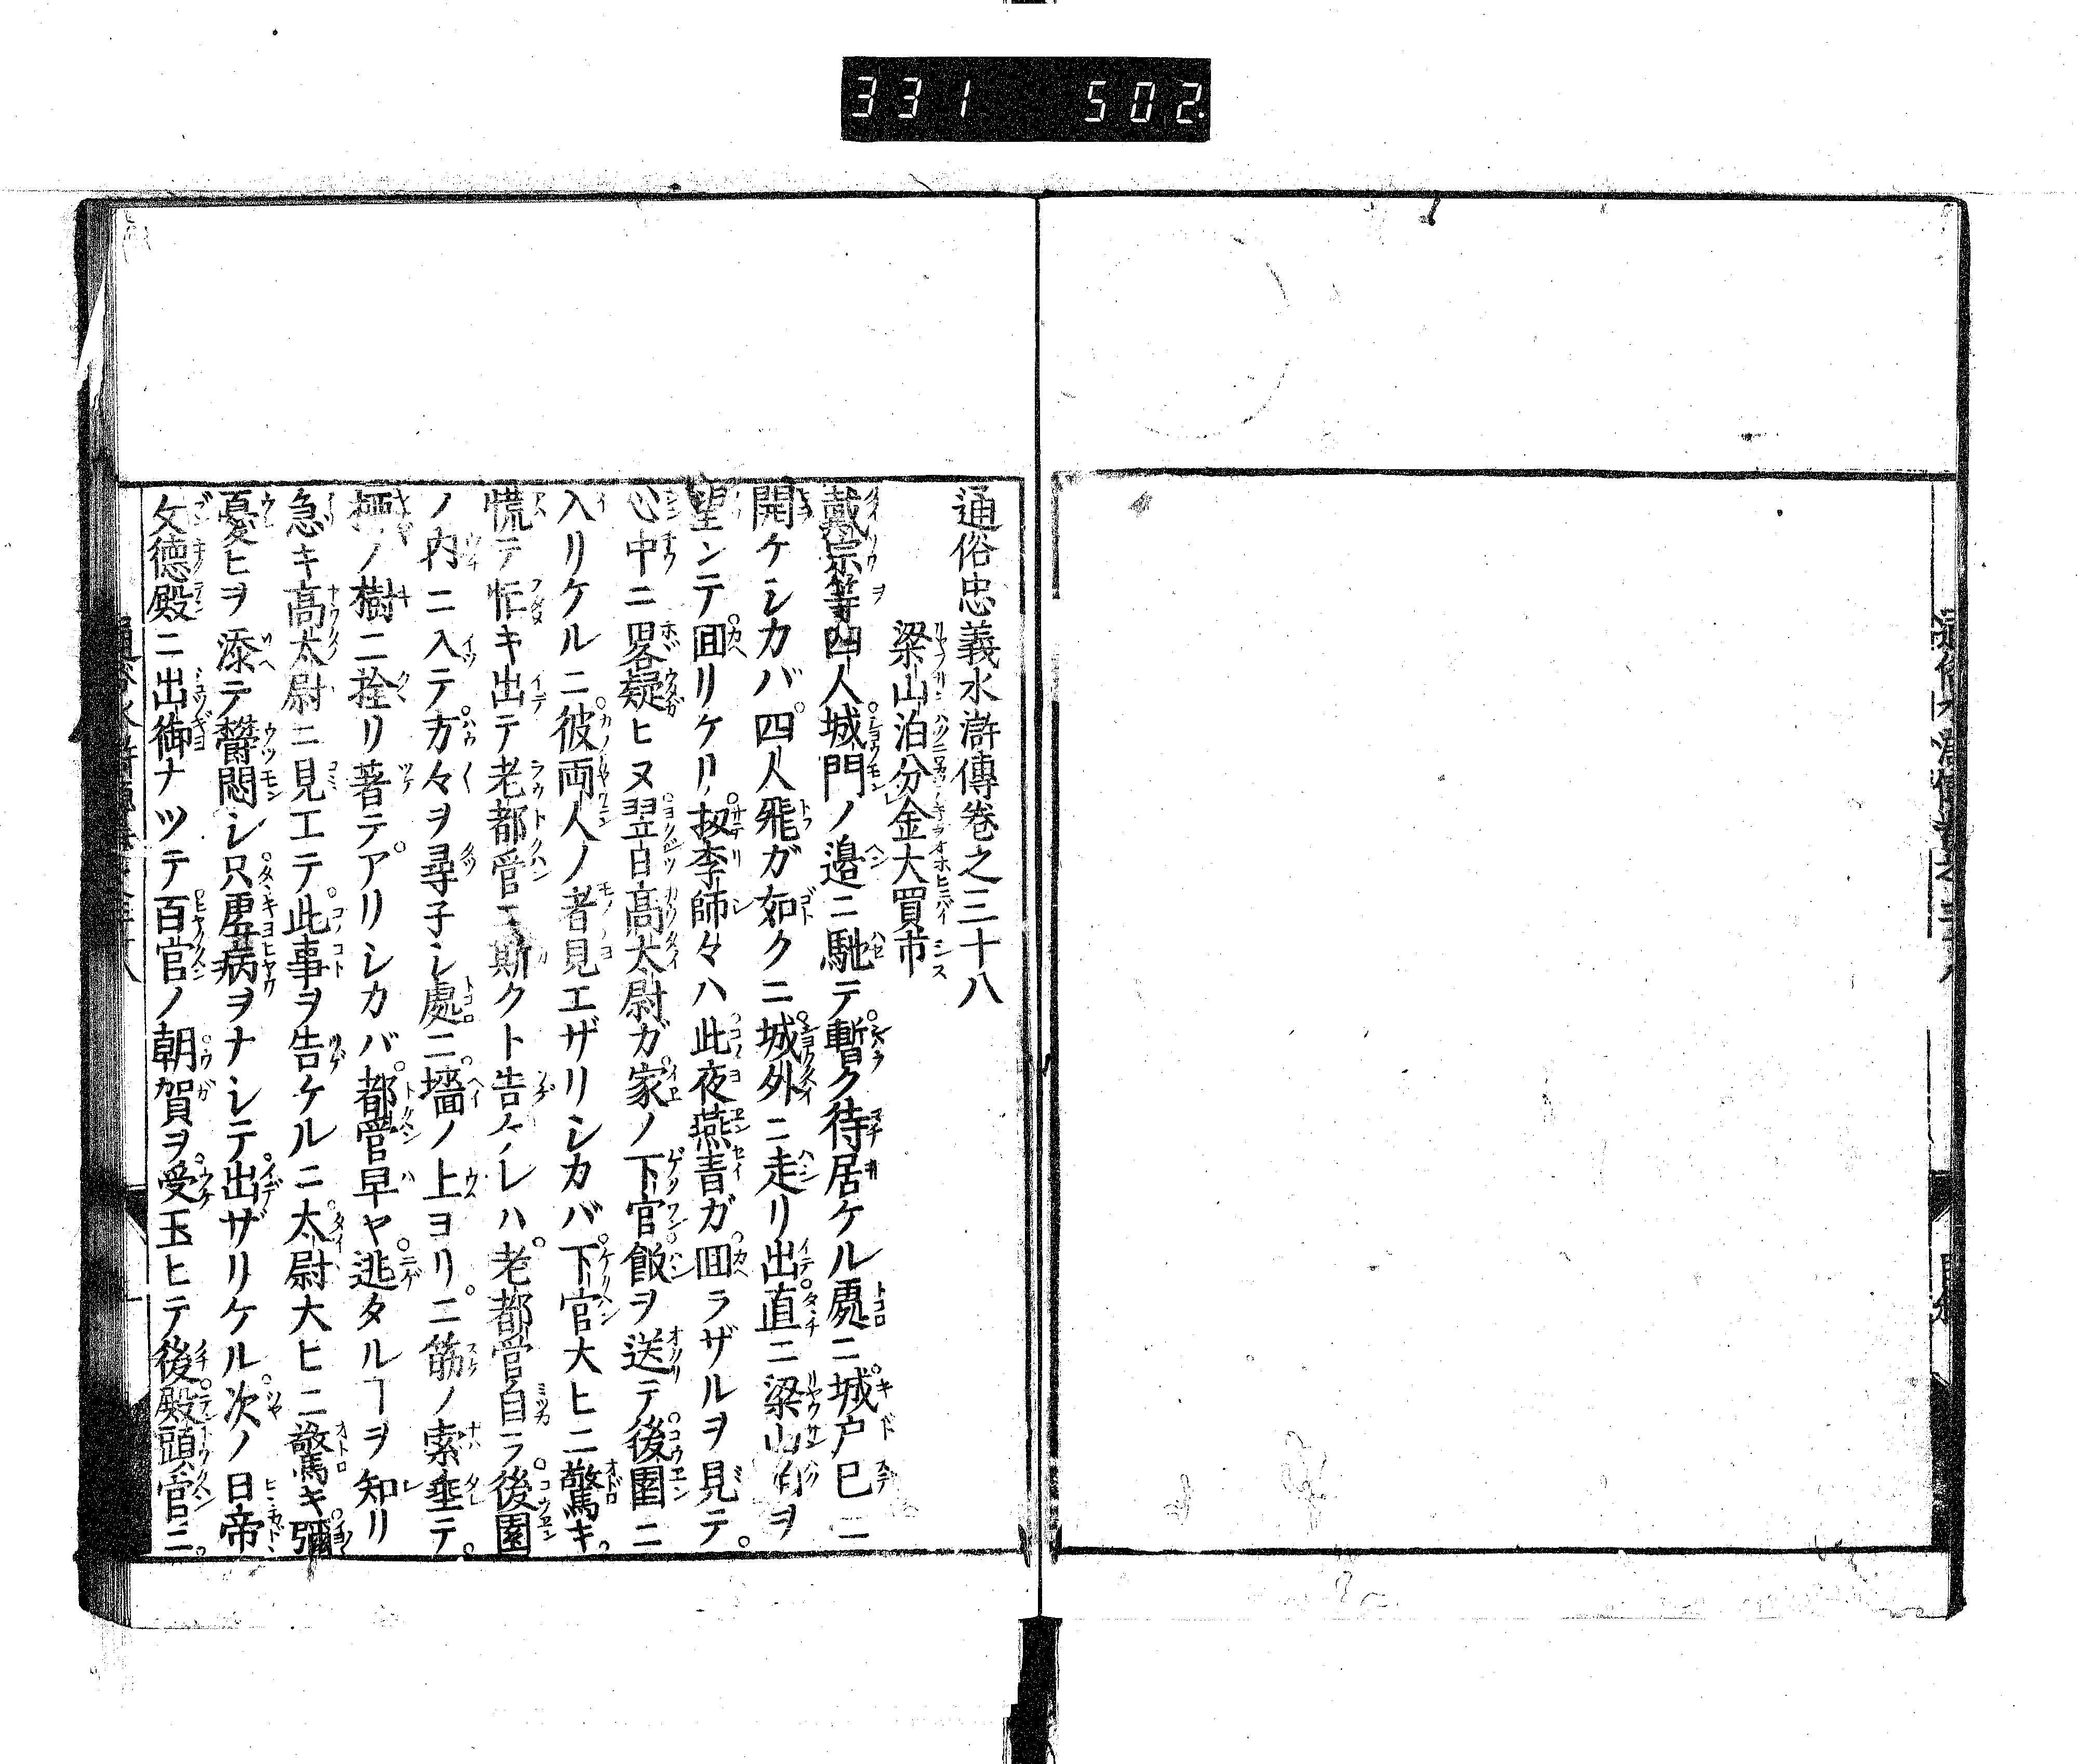 331 502
通俗忠義水滸傳卷之三十八
梁山泊分金大買市
戴宗等四人城門ノ邉ニ馳テ暫ク待居ケル處ニ城戸已ニ
開ケシカバ四人飛ガ如クニ城外ニ走リ出直ニ梁山泊ヲ
望ンテ囬リケリ扨李師々ハ此夜燕青ガ囬ラザルヲ見テ
心中ニ畧疑ヒヌ翌日高太尉ガ家ノ下官飯ヲ送テ後園ニ
入リケルニ彼両人ノ者見エザリシカバ下官大ヒニ驚キ
慌テ忙キ出テ老都管ニ斯クト告ケレハ老都管自ラ後園
ノ内ニ入テ方々ヲ尋子シ處ニ墻ノ上ヨリ二筋ノ索垂テ
ノ樹ニ拴リ著テアリシカバ都管早ヤ逃タルヿヲ知リ
急キ高太尉ニ見エテ此事ヲ告ケルニ太尉大ヒニ驚キ彌
憂ヒヲ添テ欝悶シ只虚病ヲナシテ出ザリケル次ノ日帝
文德殿ニ出御ナツテ百官ノ朝賀ヲ受玉ヒテ後殿頭官ニ